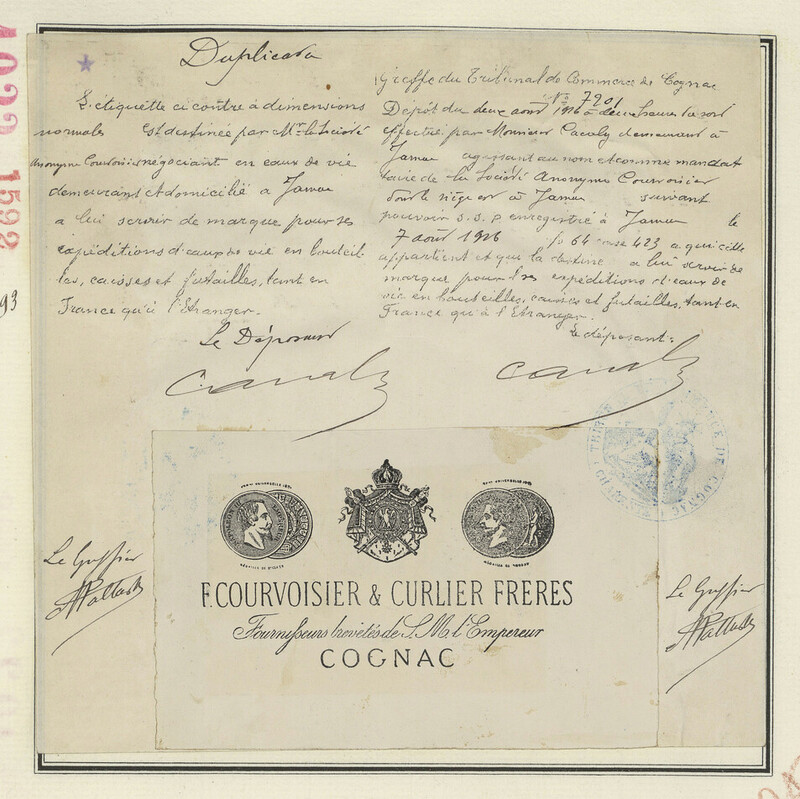 Duplicata
L'étiquette ci contre à dimensions
normales est destinée par Mr la Société
Anonyme Courvoisier négociant en eaux de vie
demeurant et domicilié a Jarnac
a lui servir de marque pour ses
expéditions d'eaux de vie en bouteil-
les, caisses et futailles, tant en
France qu'à l'Etranger.
Le Déposant
Greffe du Tribunal de Commerce de Cognac
No 7201
Dépôt du deux août 1926 à deux heures du soir
effectué par Monsieur Cavaly demeurant à
Jarnac agissant au nom et comme mandat
taire de la Société Anonyme Courvoisier
dont le siège est à Jarnac suivant
pouvoir s. s. p enregistré à Jarnac le
7 août 1926 fo 64 case 423 a qui elle
appartient et que la destine a lui servir de
marque pour les expéditions d'eaux de
vie en bouteilles, caisses et futailles, tant en
France qu'à l'Etranger.
Le déposant
F. COURVOISIER & CURLIER FRERES
Fournisseurs brevetés de S. M. l'Empereur
COGNAC
Le Greffier
Le Greffier
1592
93